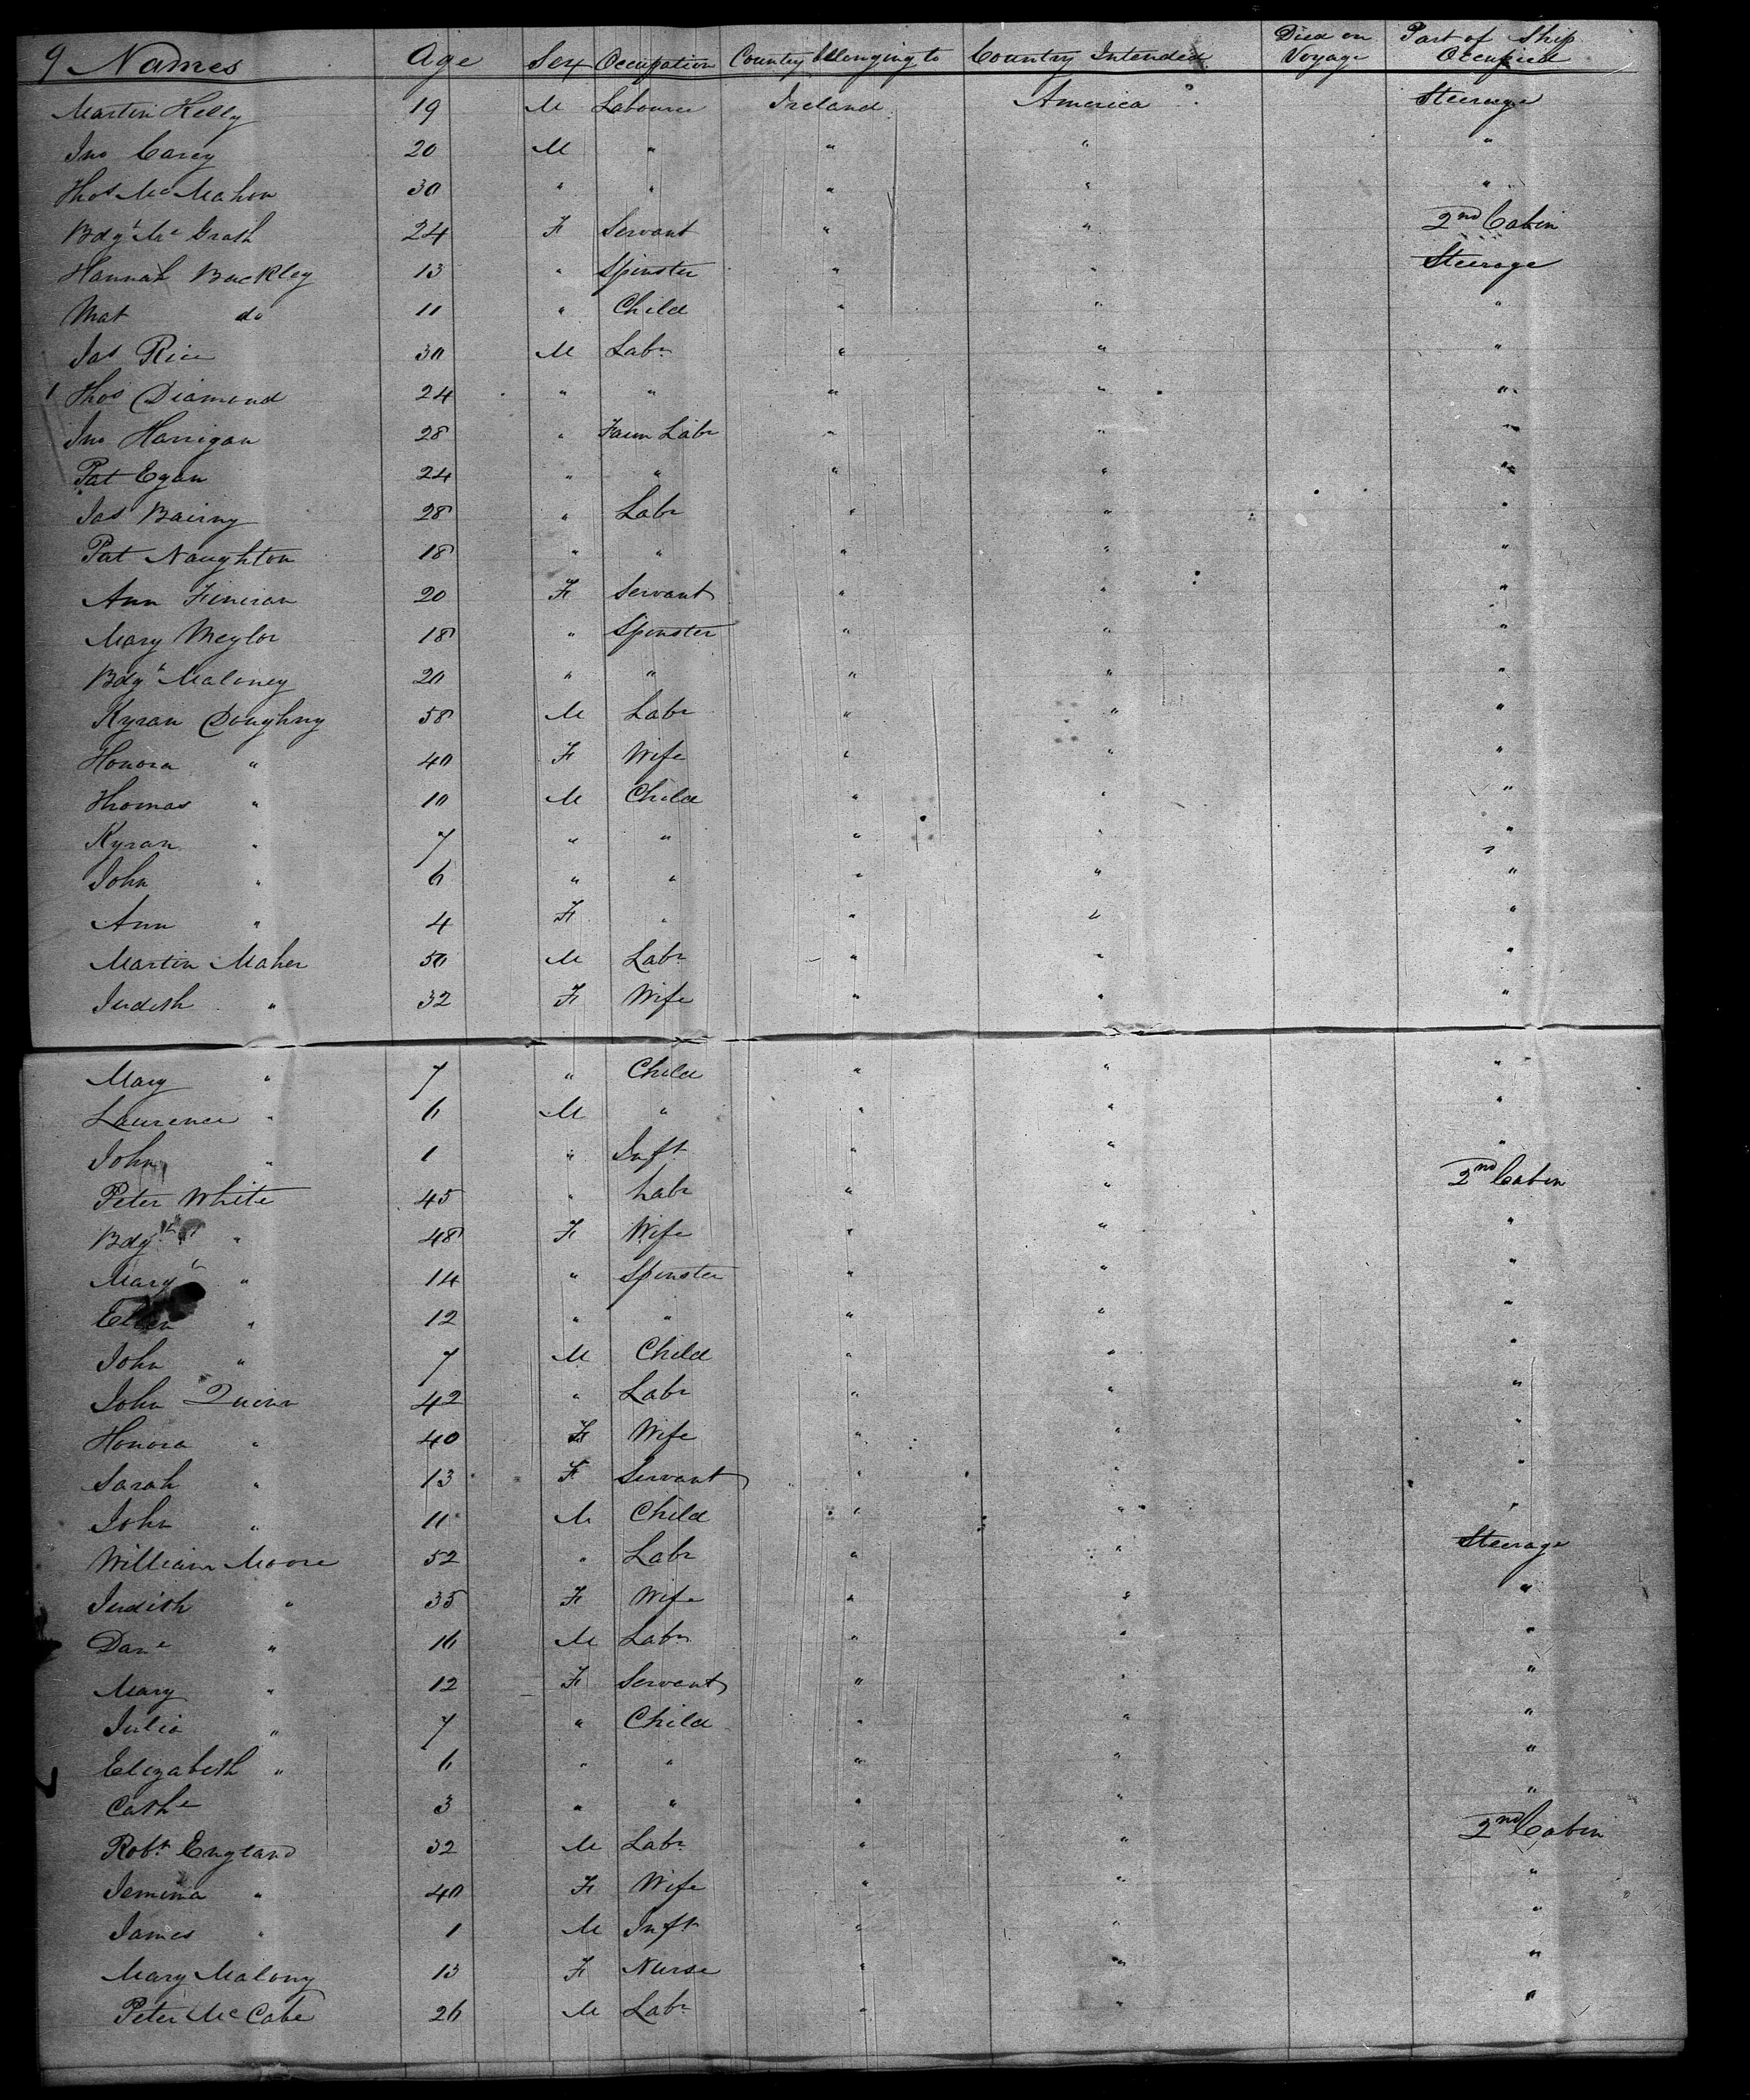 9 Names Age Sex Occupation Country belonging to Country Intended Died on Voyage Part of Ship Occupied
Martin Kelly 19 M Labourer Ireland America Steerage
Jno Carey 20 M " " " "
Thos McMahon 30 " " " " "
Bdgt McGrath 24 F Servant " " 2nd Cabin
Hannah Buckley 13 " Spinster " " Steerage
Mat do 11 " Child " " "
Jas Rice 30 M Labr " " "
1 Thos Diamond 24 " " " " "
Jno Harrigan 28 " Farm Labr " " "
Pat Egan 24 " " " " "
Jas Bairny 28 " Labr " " "
Pat Naughton 18 " " " " "
Ann Fineran 20 F Servant " " "
Mary Meylor 18 " Spinster " " "
Bdgt Maloney 20 " " " " "
Kyran Doughny 58 M Labr " " "
Honora " 40 F Wife " " "
Thomas " 10 M Child " " "
Kyran " 7 " " " " "
John " 6 " " " " "
Ann " 4 F " " " "
Martin Maher 50 M Labr " " "
Judith " 32 F Wife " " "
Mary " 7 " Child " " "
Laurence " 6 M " " " "
John " 1 " Inft " " "
Peter White 45 " Labr " " 2nd Cabin
Bdgt " 48 F Wife " " "
Mary " 14 " Spinster " " "
Ellen " 12 " " " " "
John " 7 M Child " " "
John Quinn 42 " Labr " " "
Honora " 40 F Wife " " "
Sarah " 13 F Servant " " "
John " 11 M Child " " "
William Moore 52 " Labr " " Steerage
Judith " 35 F Wife " " "
" 16 M Labr " " "
Mary " 12 F Servant " " "
Julia " 7 " Child " " "
Elizabeth " 6 " " " " "
Cathe 3 " " " " "
Robt England 32 M Labr " " 2nd Cabin
Jemima " 40 F Wife " " "
James " 1 M Inft " " "
Mary Malony 13 F Nurse " " "
Peter McCabe 26 M Labr " " "